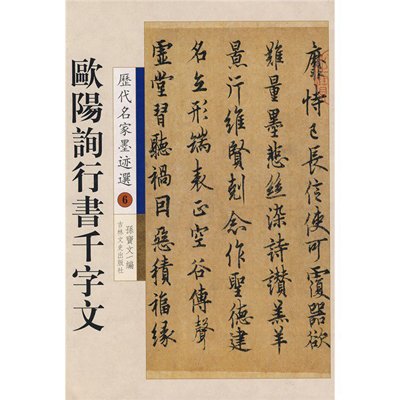 靡恃己長信使可覆器欲
難量墨悲絲染詩讚羔羊
景行維賢剋念作聖德建
名立形端表正空谷傳聲
虛堂習聽禍因惡積福緣
歷代名家墨迹選 6
孫寶文 編
吉林文史出版社
歐陽詢行書千字文